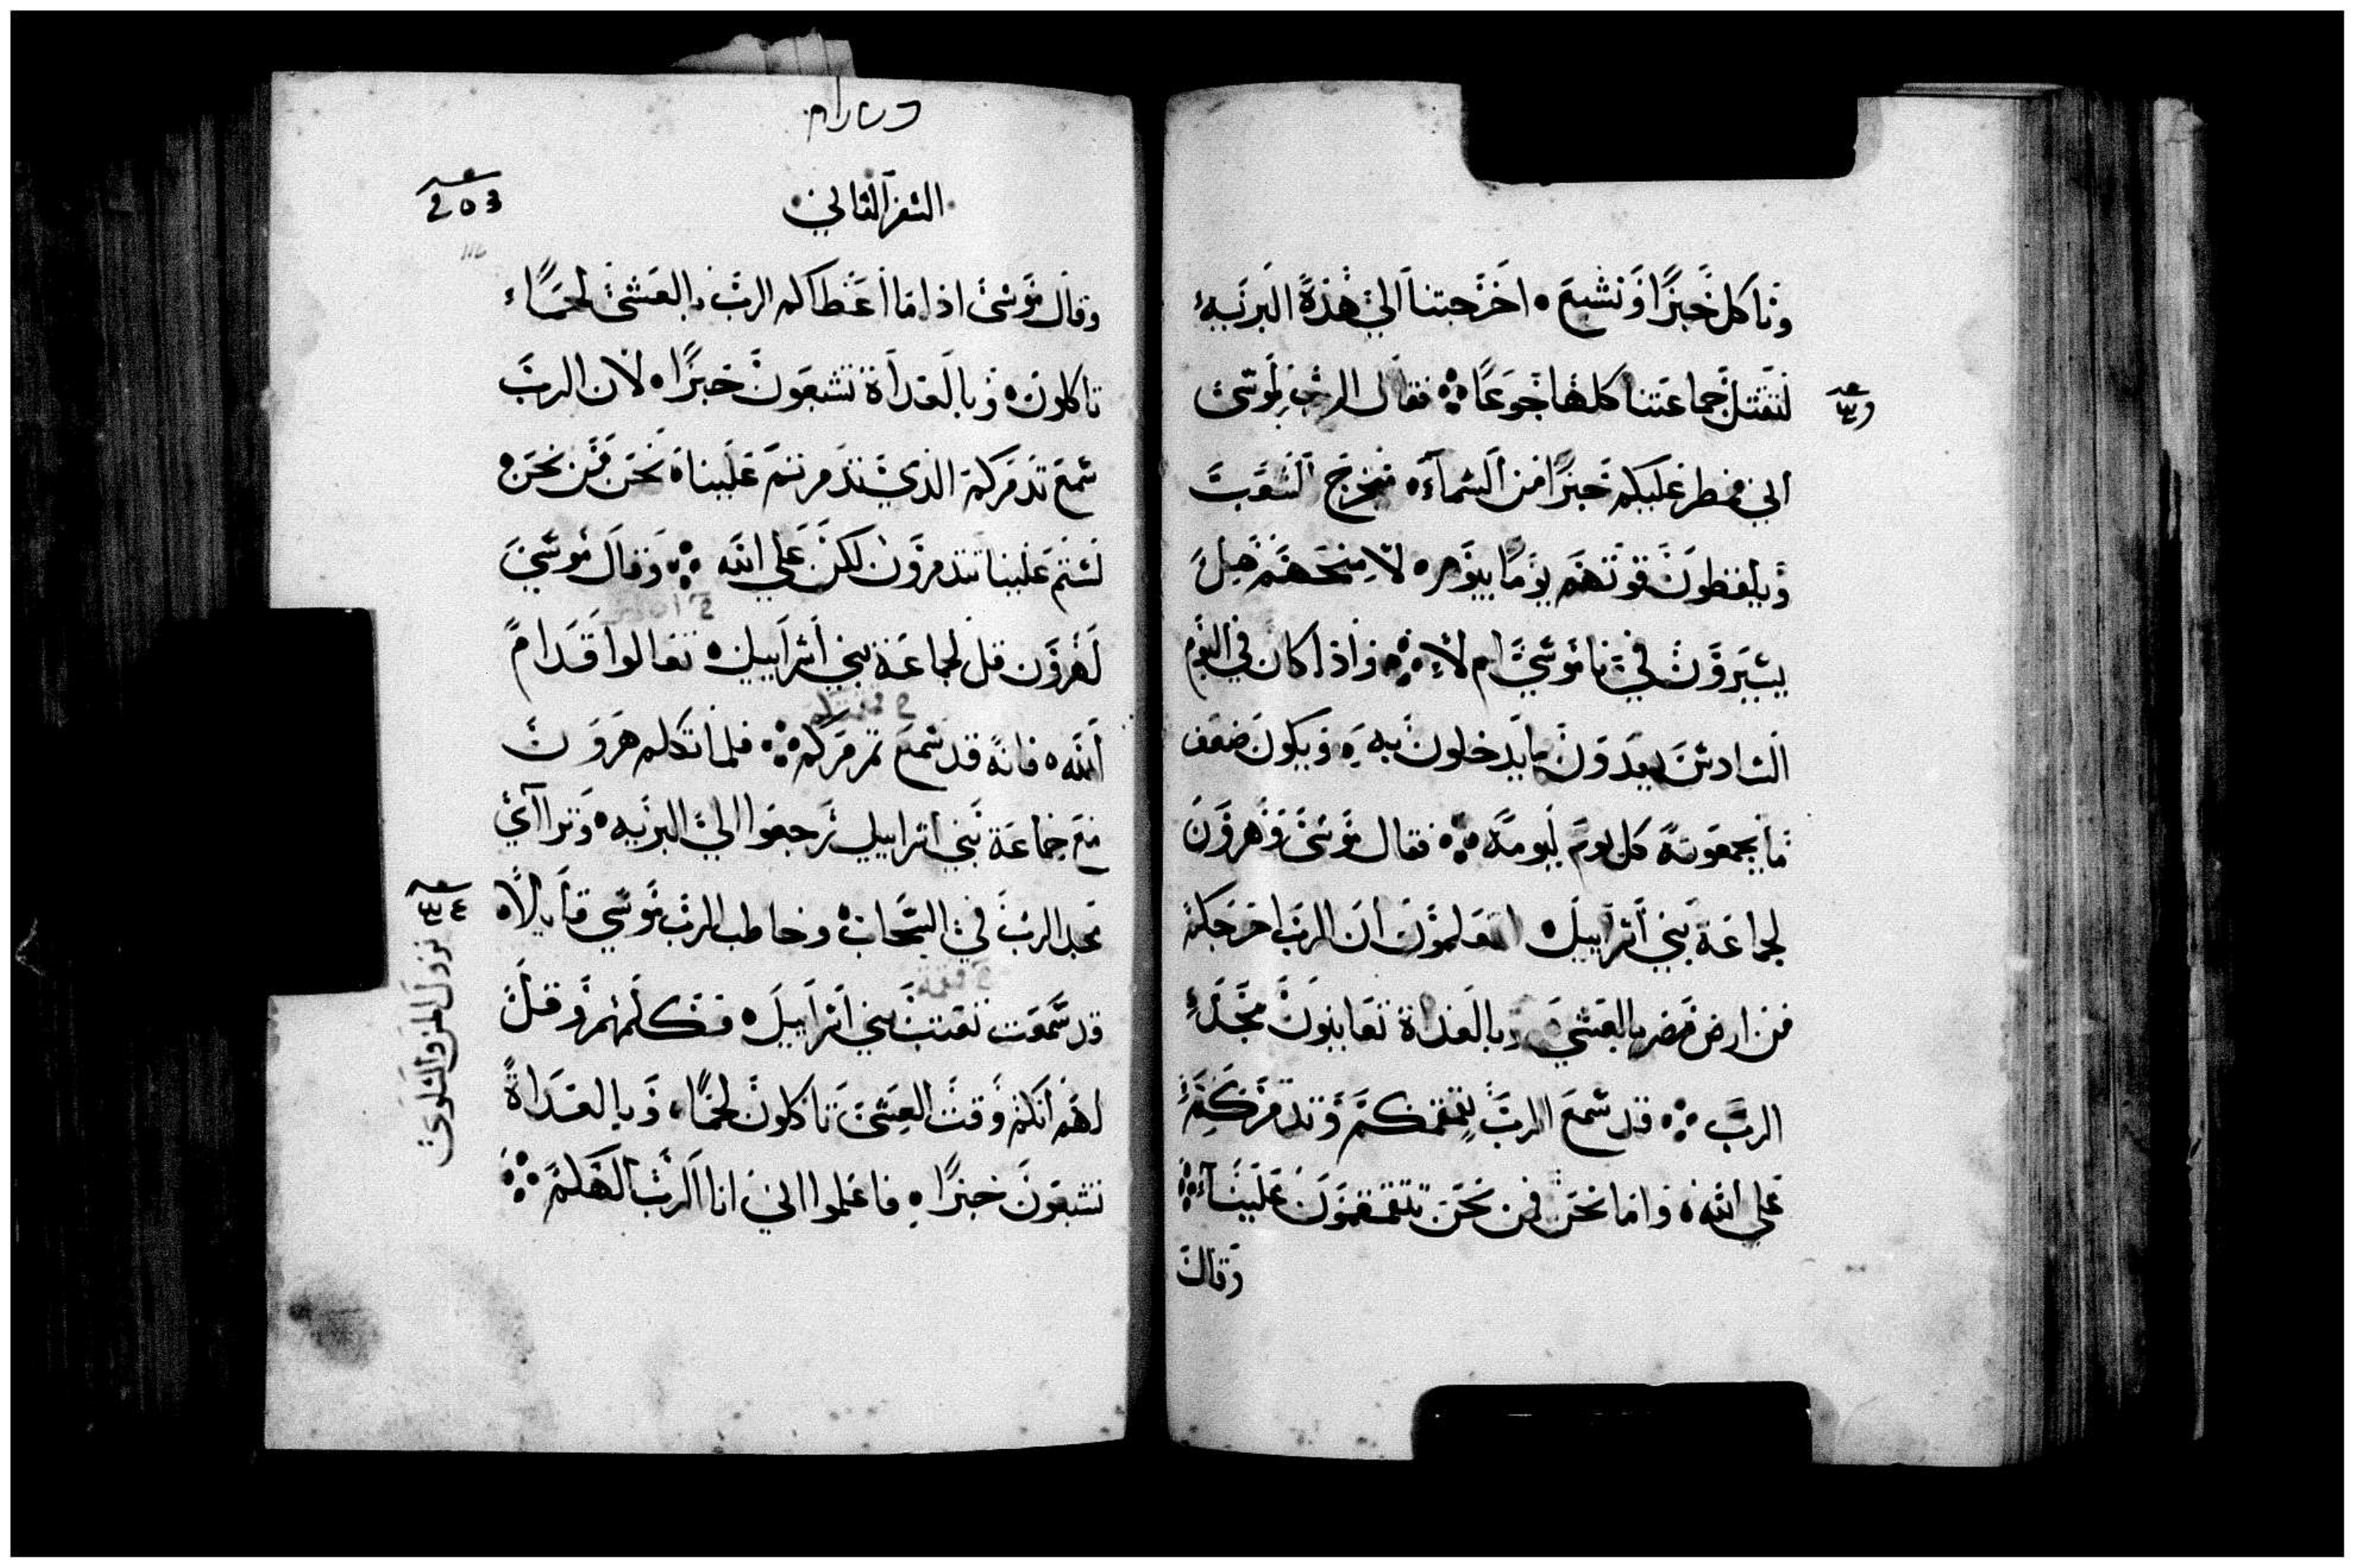 وناكل خبزا ونشبع ه اخرجتنا الي هذه البريه
لتقتل جماعتنا كلها جوعا ܀ فقال الرب لموسى
اني ممطر عليكم خبزا من السماء ه فيخرج الشعب
ويلقطون قوتهم يوما بيوم ه لامتحنهم هل
يسيرون في ناموسي ام لا ܀ واذا كان في اليوم
السادس يعدون ما يدخلون به ه ويكون ضعف
ما يجمعونه كل يوم ليومه ܀ فقال موسى وهرون
لجماعة بني اسراييل ه تعلمون ان الرب اخرجكم
من ارض مصر بالعشي ه وبالغداة تعاينون مجد
الرب ܀ قد سمع الرب تقمقمكم وتذمركم
علي الله ه واما نحن فمن نحن تتقمقمون علينا ܀
وقال
السفر الثاني
وقال موسى اذا ما اعطاكم الرب بالعشي لحما
تاكلون ه وبالغداة تشبعون خبزا ه لان الرب
سمع تذمركم الذي تذمرتم علينا ه نحن من نحن ه
لستم علينا تتذمرون لكن علي الله ܀ وقال موسى
لهرون قل لجماعة بني اسراييل ه تعالوا قدام
الله ه فانه قد سمع تمرمركم ܀ فلما تكلم هرون
مع جماعة بني اسراييل رجعوا الي البريه ه وتراآي
مجد الرب في السحاب ه وخاطب الرب موسي قايلا ه
قد سمعت تعتب بني اسراييل ه فكلمهم وقل
لهم انكم وقت العشي تاكلون لحما ه وبالغداة
تشبعون خبزا ه فاعلموا اني انا الرب الهكم ܀
نزول المن والسلوى